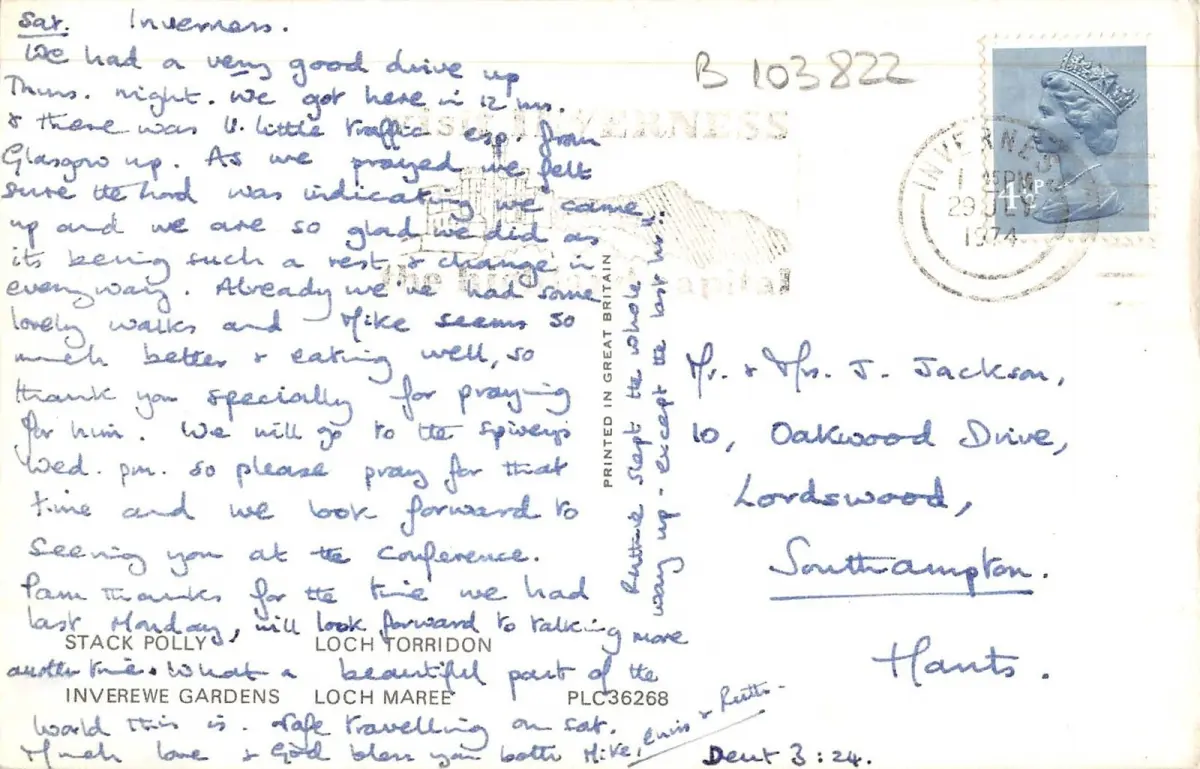 Sat. Inverness.
We had a very good drive up
Thurs. night. We got here in 12 hrs.
& there was v. little traffic esp. from
Glasgow up. As we prayed we felt
sure the Lord was indicating we came
up and we are so glad we did as
its being such a rest & change in
everyway. Already we've had some
lovely walks and Mike seems so
much better & eating well, so
thank you specially for praying
for him. We will go to the Spiveys
Wed. pm. so please pray for that
time and we look forward to
seeing you at the conference.
Pam thanks for the time we had
last Monday, will look forward to talking more
another time. What a beautiful part of the
world this is. Safe travelling on Sat.
Much love & God bless you both Mike, & Ruth.
Deut 3:24.
Ruthie slept the whole
way up - except the last hr!
PRINTED IN GREAT BRITAIN
STACK POLLY LOCH TORRIDON
INVEREWE GARDENS LOCH MAREE PLC36268
B 103822
visit INVERNESS
the highland capital
INVERNESS
PM
29 JLY
1974
4½P
Mr. & Mrs. J. Jackson,
10, Oakwood Drive,
Lordswood,
Southampton.
Hants.